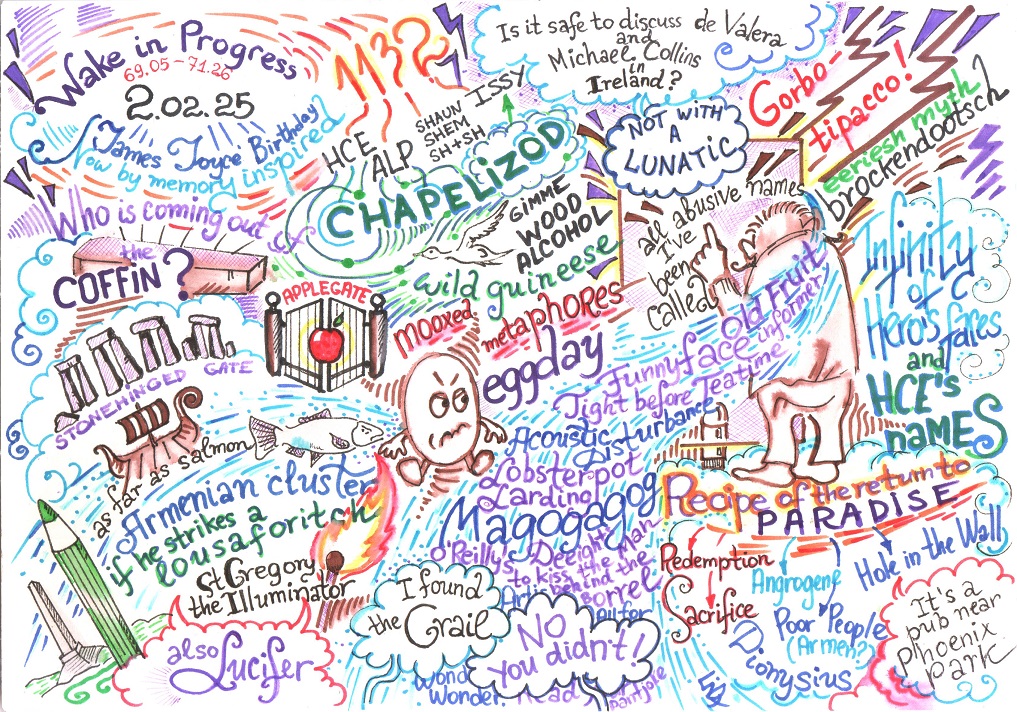 Wake in Progress
69.05 - 71.26
2.02.25
James Joyce Birthday
Now by memory inspired
M3?
Is it safe to discuss de Valera
and
Michael Collins
in
Ireland?
NOT WITH
A
LUNATIC
Gorbo-
tipacco!
eeriesh myth
brockendootsch
HCE
ALP
SHAUN
SHEM
SH+SH
ISSY
CHAPELIZOD
GIMME
WOOD
ALCOHOL
wild guineese
Who is coming out of
the
COFFIN?
APPLEGATE
mooxed
metaphores
eggday
all abusive names
I've
been
called
Old Fruit
informer
Funnyface
Tight before Teatime
Acoustic
Disturbance
Lobsterpot
Lardling
Magogagog
O'Reilly's Deeight
to kiss the Man
behind the
Borrel
Infinity
of
Hero's faces
Tales
and
HCE's
names
STONEHINGED GATE
as far as salmon
Armenian cluster
if he strikes a
lousaforitch
St Gregory
the Illuminator
also Lucifer
I found
the Grail
NO
you didn't!
Wonder
Recipe of the return to
PARADISE
Redemption
Sacrifice
Angrogene
Poor People
(Armen?)
Dionysius
Hole in the Wall
It's a
pub near
Phoenix
Park